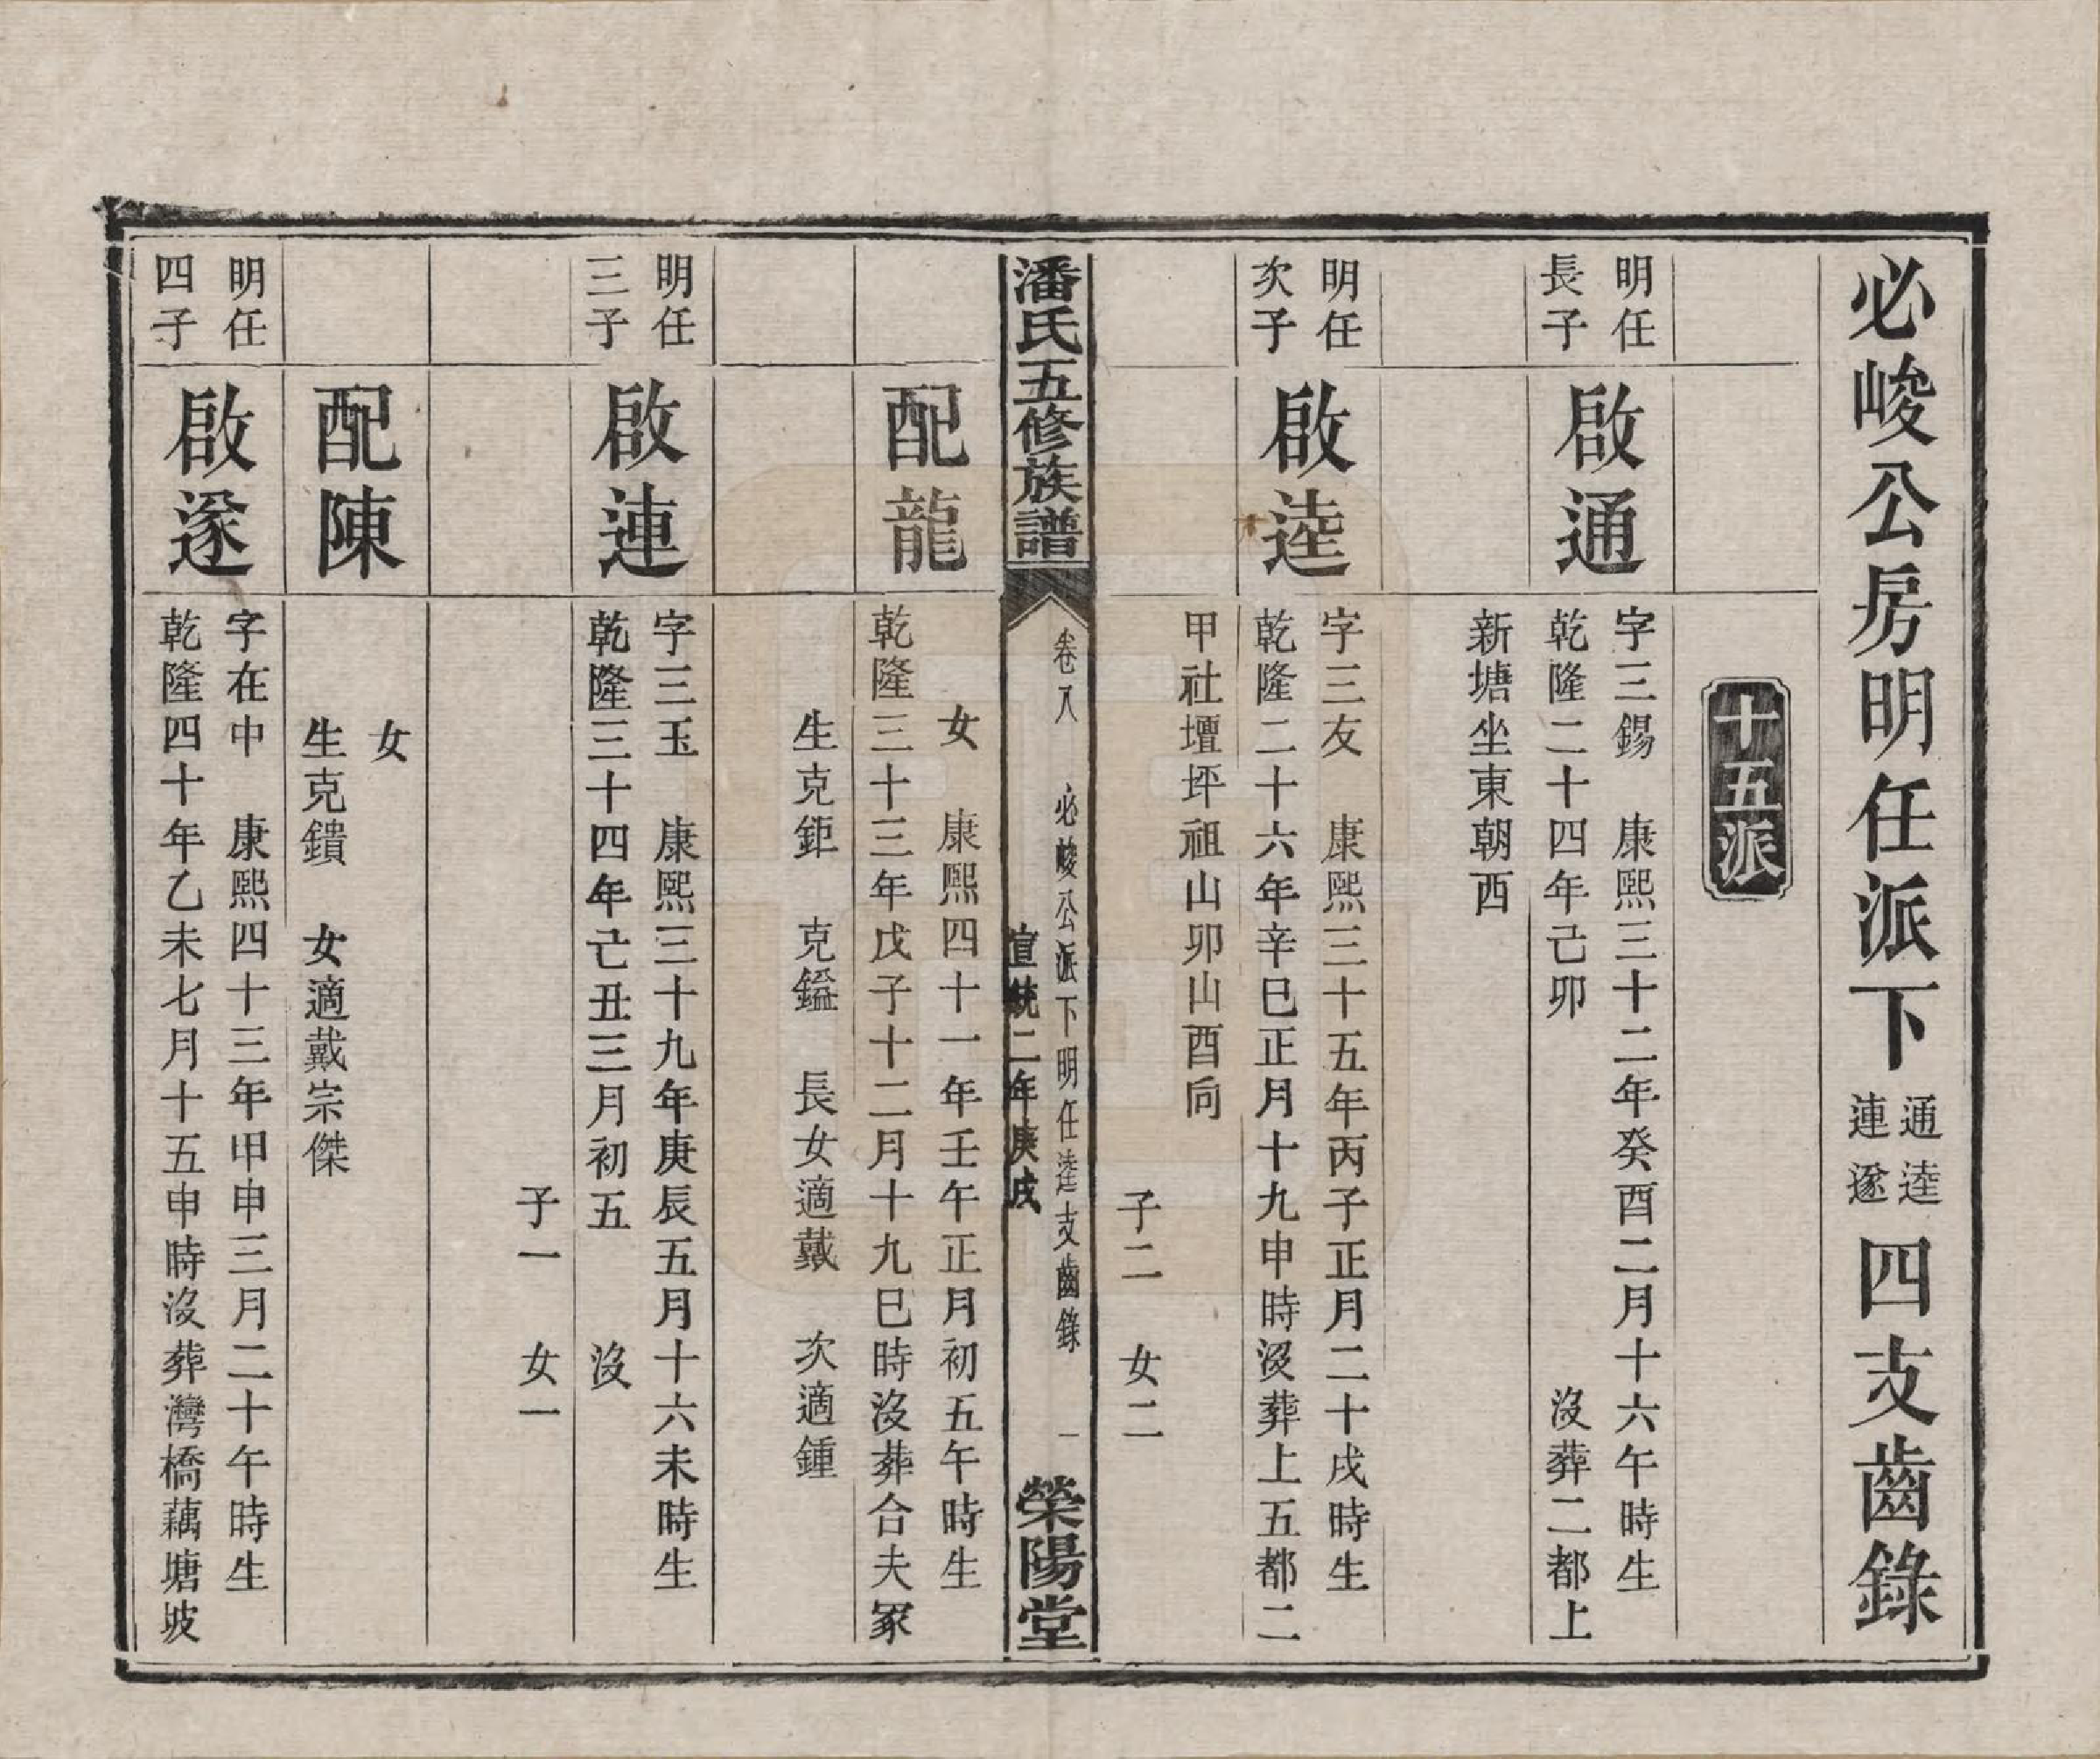 必峻公房明任派下通逵連遂四支齒錄
十五派
明任
長子
啟通
字三錫 康熙三十二年癸酉二月十六午時生
乾隆二十四年己卯 沒葬二都上
新塘坐東朝西
明任
次子
啟逵
字三友 康熙三十五年丙子正月二十戌時生
乾隆二十六年辛巳正月十九申時沒葬上五都二
甲社壇坪祖山卯山酉向
子二 女二
潘氏五修族譜
卷八 必峻公派下明任逵支齒錄 一
宣統二年庚戌
榮陽堂
配龍
女 康熙四十一年壬午正月初五午時生
乾隆三十三年戊子十二月十九巳時沒葬合夫冢
生克鉅 克鎰 長女適戴 次適鍾
明任
三子
啟連
字三玉 康熙三十九年庚辰五月十六未時生
乾隆三十四年亡丑三月初五 沒
子一 女一
配陳
女
生克鐀 女適戴宗傑
明任
四子
啟遂
字在中 康熙四十三年甲申三月二十午時生
乾隆四十年乙未七月十五申時沒葬灣橋藕塘坡